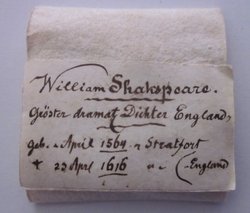 William Shakspeare.
Gröster dramat Dichter England,
geb. April 1564 Stratfort
† 23 Aprl 1616 (England